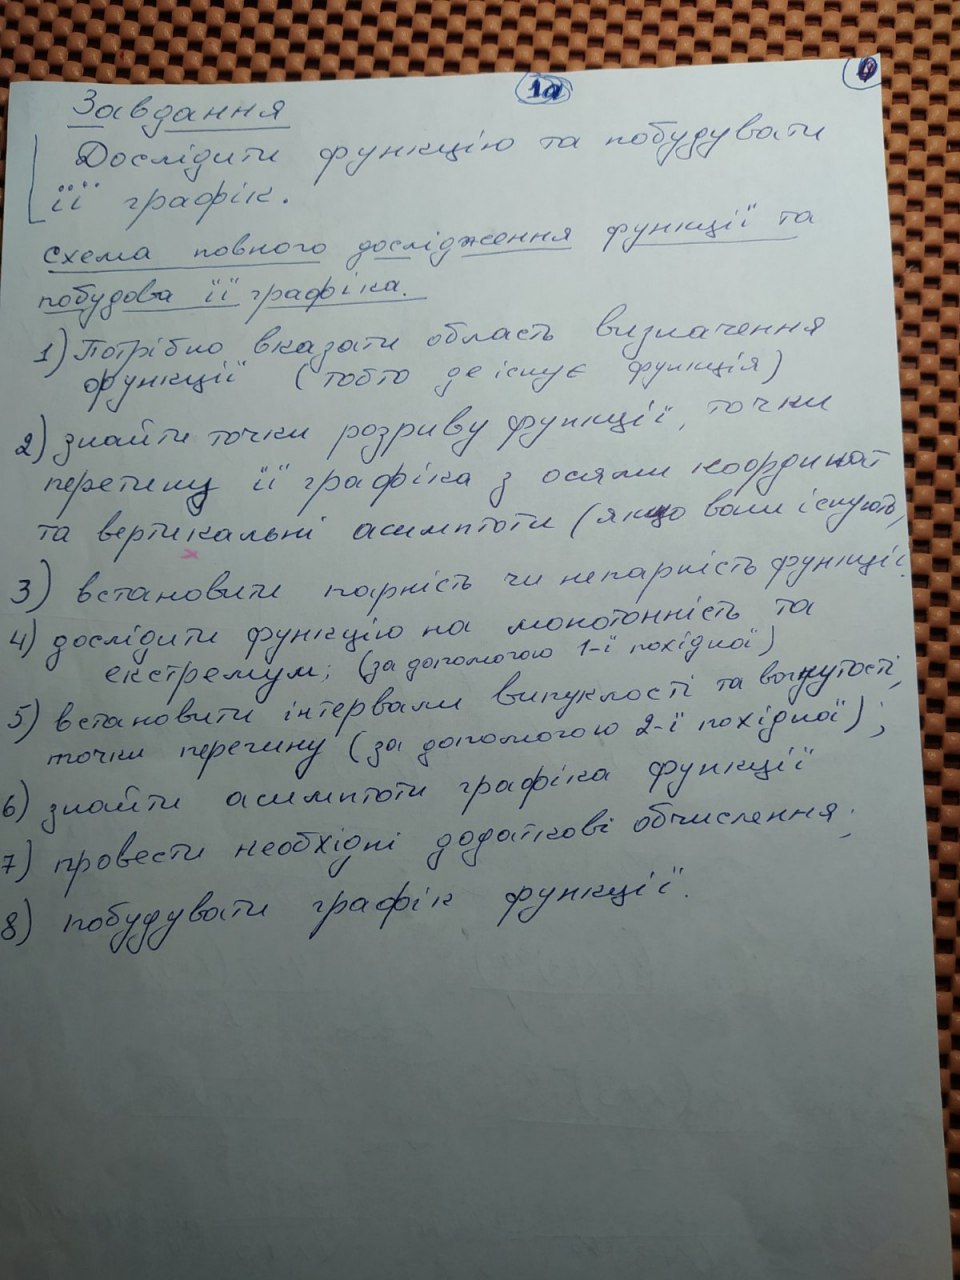 1a
Завдання
Дослідити функцію та побудувати
її графік.
схема повного дослідження функції та
побудова її графіка.
1) Потрібно вказати область визначення
функції (тобто де існує функція)
2) знайти точки розриву функції, точки
перетину її графіка з осями координат
та вертикальні асимптоти (якщо вони існують)
3) встановити парність чи непарність функції.
4) дослідити функцію на монотонність та
екстремум; (за допомогою 1-ї похідної)
5) встановити інтервали випуклості та вогнутості,
точки перегину (за допомогою 2-ї похідної);
6) знайти асимптоти графіка функції
7) провести необхідні додаткові обчислення;
8) побудувати графік функції.